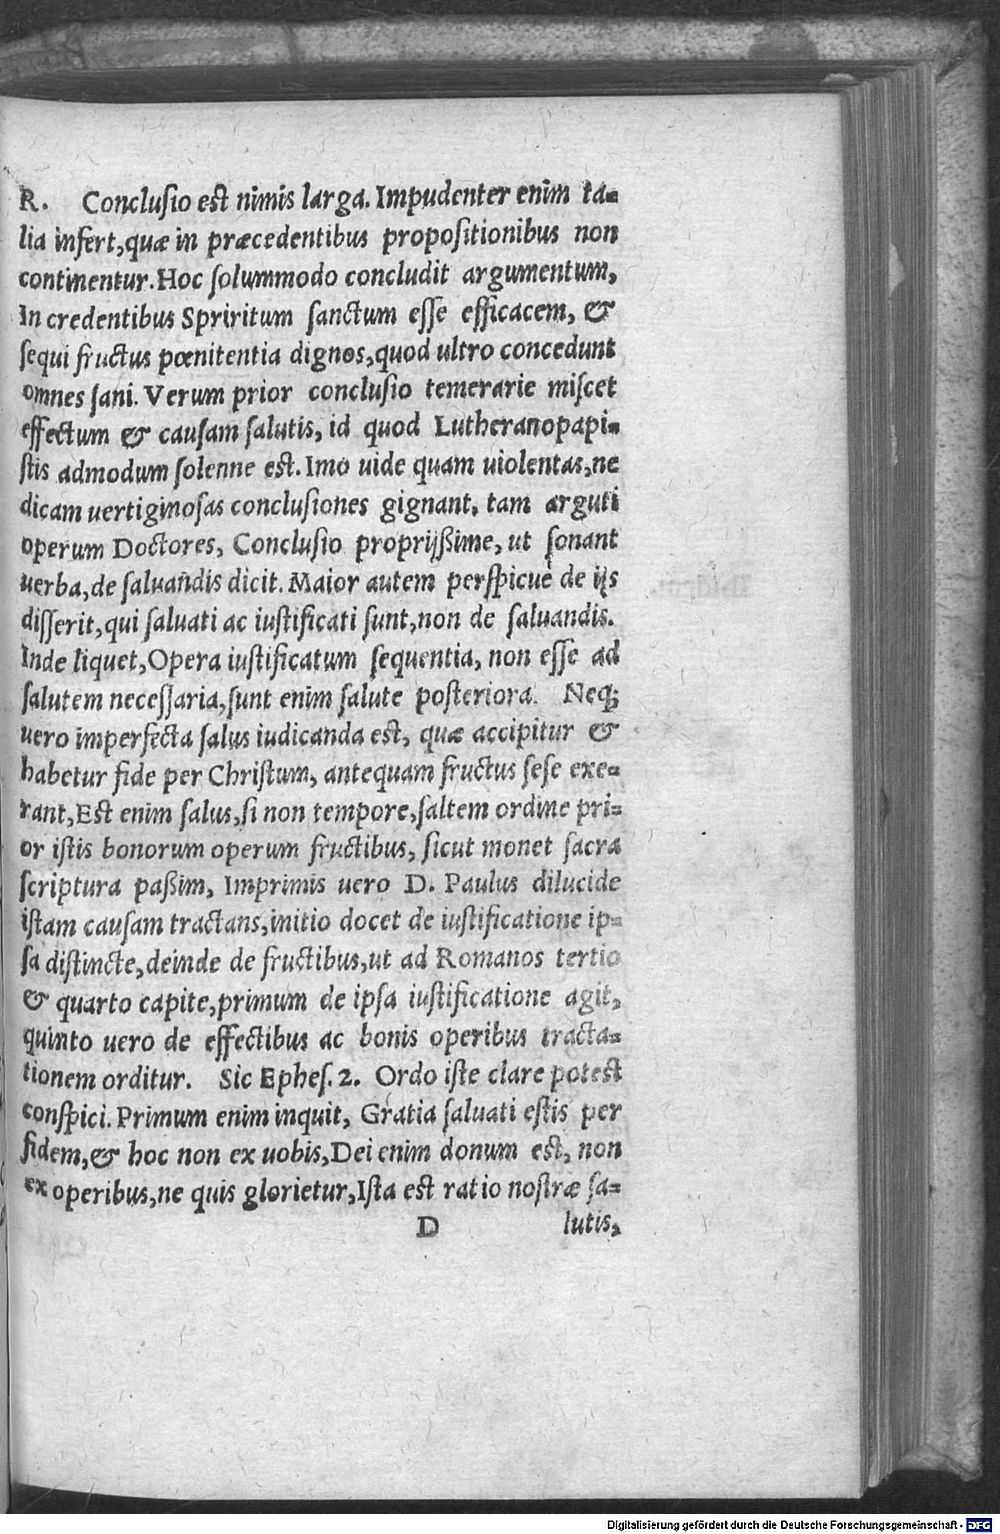 R. Conclusio est nimis larga. Impudenter enim ta-
lia infert, quæ in præcedentibus propositionibus non
continentur. Hoc solummodo concludit argumentum,
In credentibus Spriritum sanctum esse efficacem, &
sequi fructus pœnitentia dignos, quod ultro concedunt
omnes sani. Verum prior conclusio temerarie miscet
effectum & causam salutis, id quod Lutheranopapi-
stis admodum solenne est. Imo uide quam uiolentas, ne
dicam uertiginosas conclusiones gignant, tam arguti
operum Doctores, Conclusio proprijßime, ut sonant
uerba, de saluandis dicit. Maior autem perspicue de ijs
disserit, qui saluati ac iustificati sunt, non de saluandis.
Inde liquet, Opera iustificatum sequentia, non esse ad
salutem necessaria, sunt enim salute posteriora. Neq;
uero imperfecta salus iudicanda est, quæ accipitur &
habetur fide per Christum, antequam fructus sese exe-
rant, Est enim salus, si non tempore, saltem ordine pri-
or istis bonorum operum fructibus, sicut monet sacra
scriptura paßim, Imprimis uero D. Paulus dilucide
istam causam tractans, initio docet de iustificatione ip-
sa distincte, deinde de fructibus, ut ad Romanos tertio
& quarto capite, primum de ipsa iustificatione agit,
quinto uero de effectibus ac bonis operibus tracta-
tionem orditur. Sic Ephes. 2. Ordo iste clare potest
conspici. Primum enim inquit, Gratia saluati estis per
fidem, & hoc non ex uobis, Dei enim donum est, non
ex operibus, ne quis glorietur, Ista est ratio nostræ sa-
D lutis,
Digitalisierung gefördert durch die Deutsche Forschungsgemeinschaft - DFG